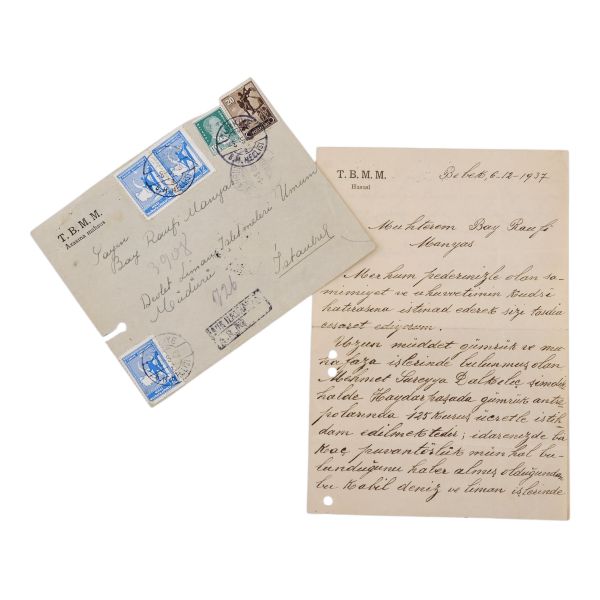 T. B. M. M.
Azasına mahsus
Sayın
Bay Raufi Manyas
Devlet Limanı İşletmeleri Umum
Müdürü
İstanbul
3908
726
20
T. B. M. M.
Hususî
Bebek, 6-12-1937
Muhterem Bay Raufi
Manyas
Merhum pederinizle olan sa-
mimiyet ve uhuvvetimin kudsî
hatırasına istinad ederek sizi tasdia
cesaret ediyorum.
Uzun müddet gümrük ve mu-
hafaza işlerinde bulunmuş olan
Mehmet Süreyya Dalkılıç şimdi
halde Haydarpaşada gümrük antre
polarında 125 kuruş ücretle istih
dam edilmektedir; idarenizde bir
kaç puvantörlük münhal bu-
lunduğunu haber almış olduğundan
bu kabil deniz ve liman işlerinde